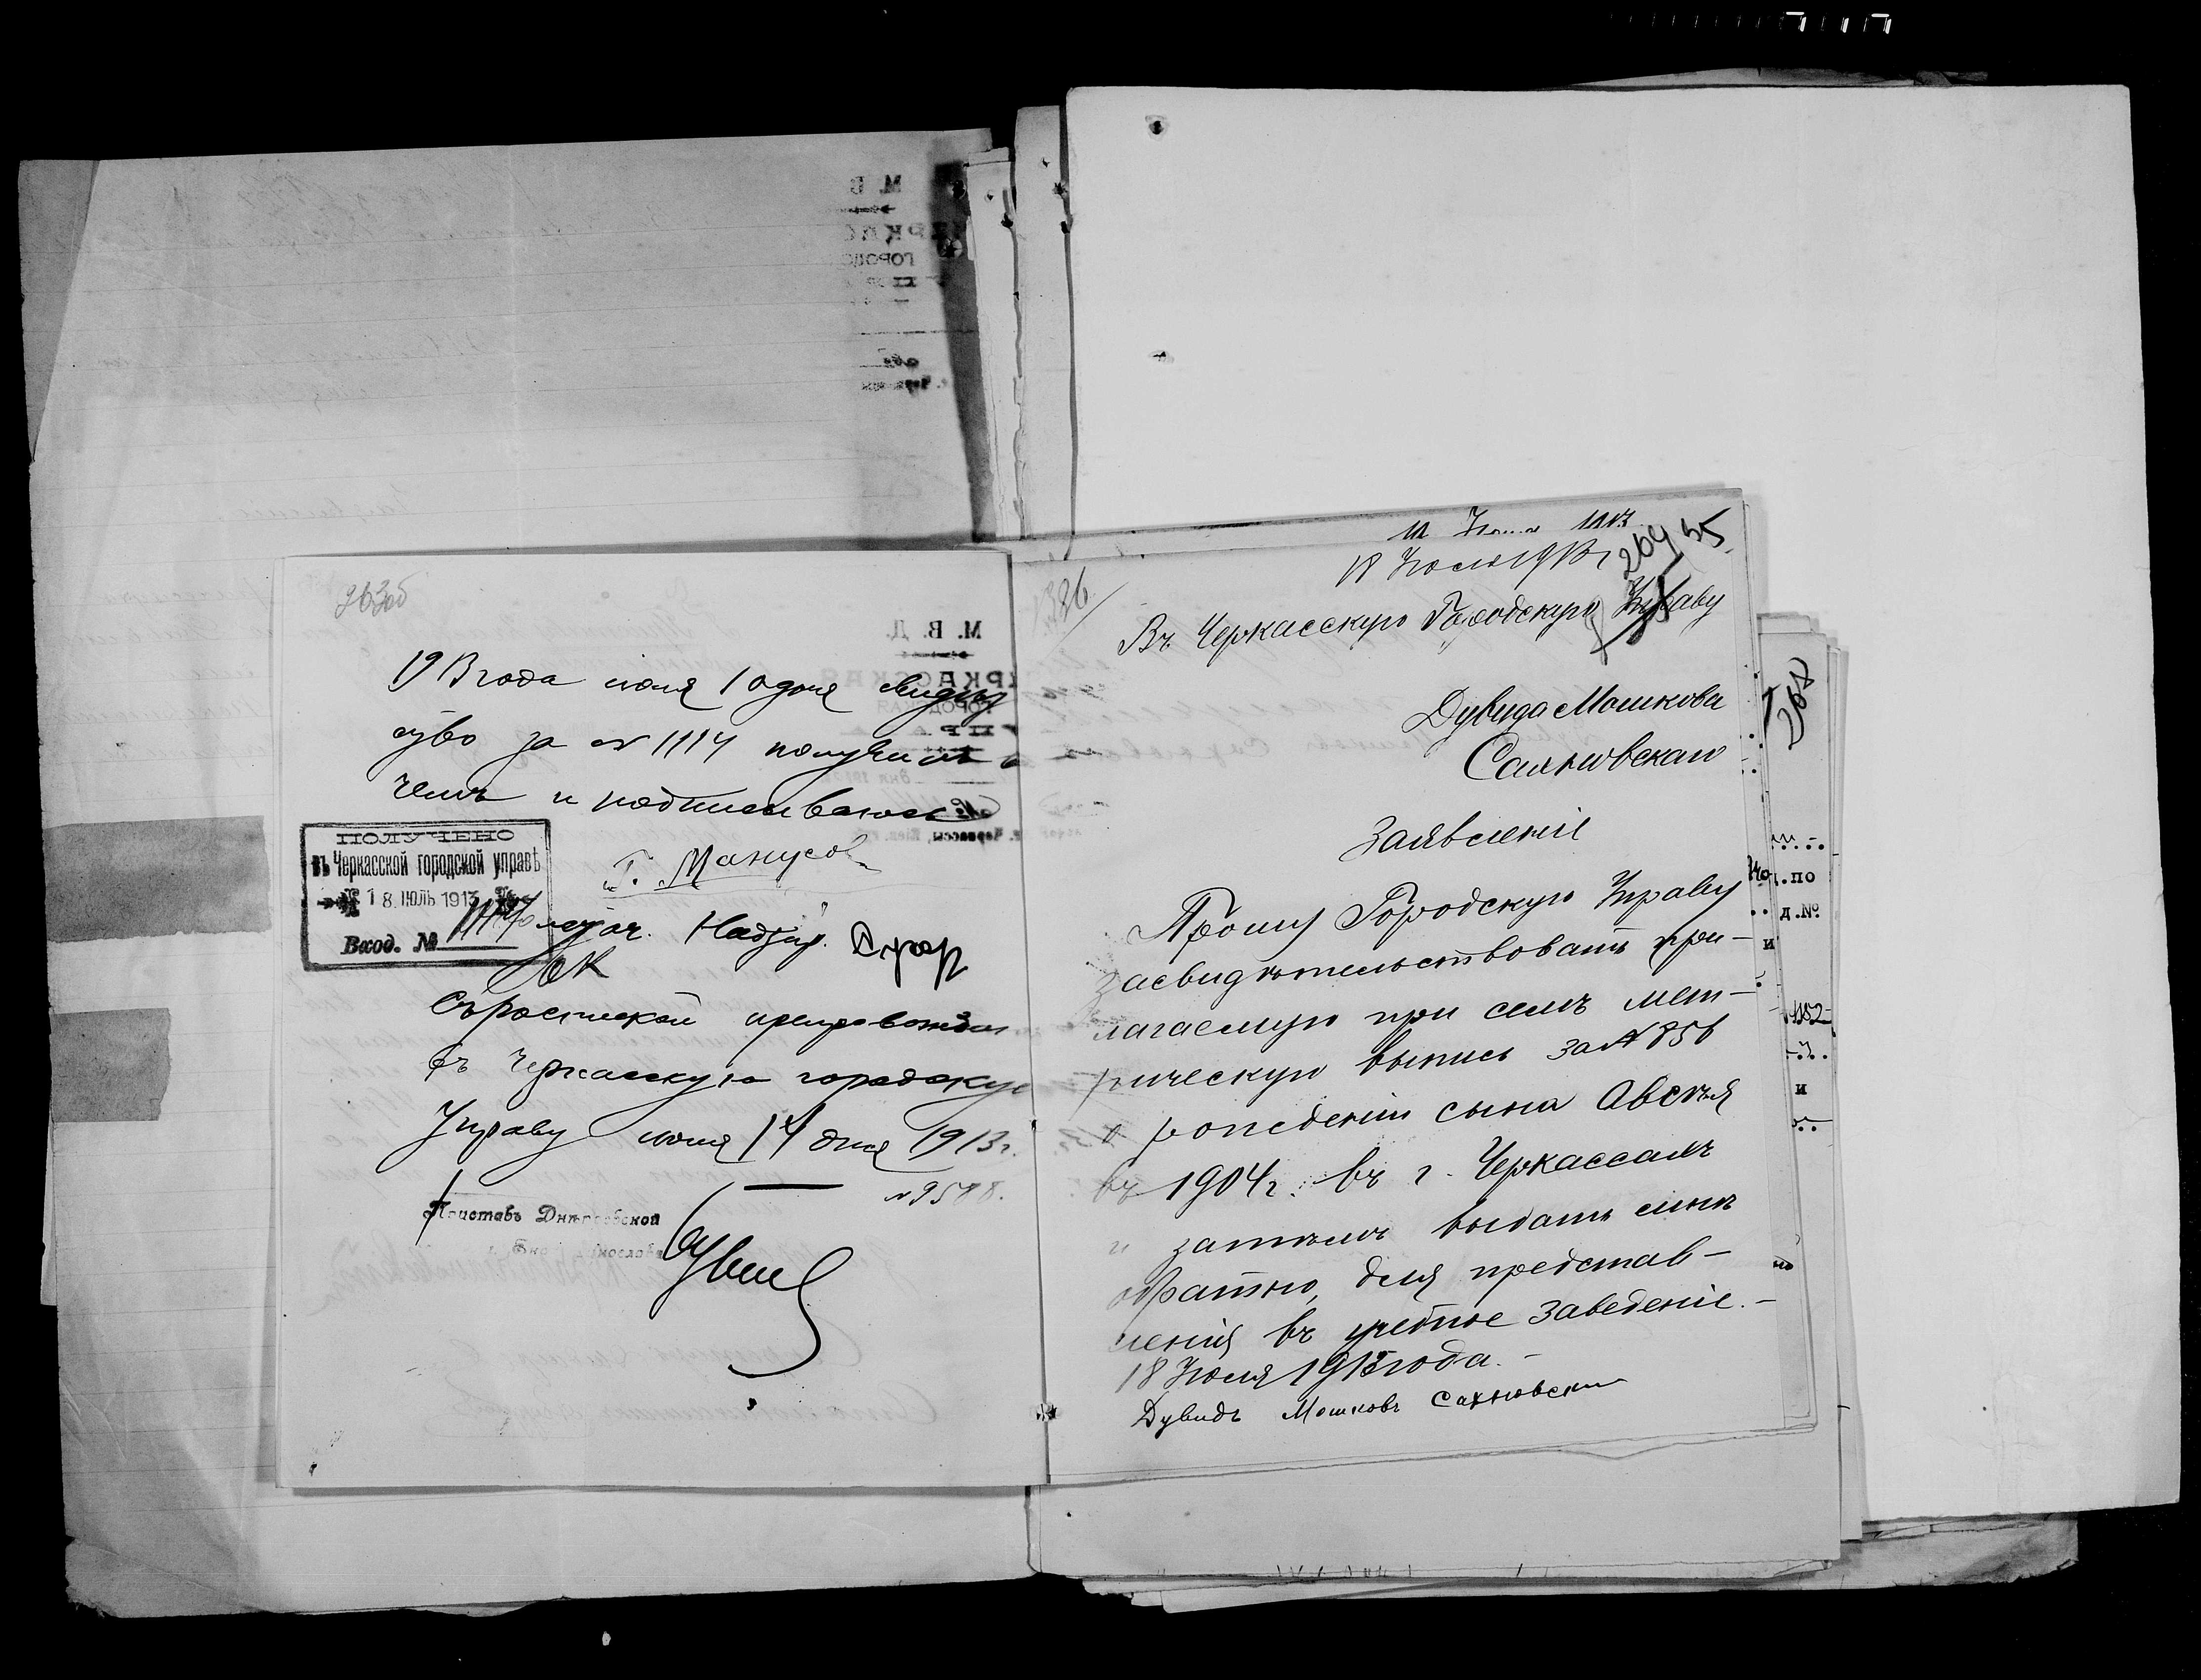 263об
1913 года июля 10 дня свидѣтель
ство за № 1114 получилъ о
чемъ и подписываюсь
Г. Манусов
ПОЛУЧЕНО
въ Черкасской городской управѣ
18. ІЮЛЬ 1913
Вход. №
Околоточ. Надзир.
Съ роспиской препровождаю
въ Черкасскую городскую
Управу июля 14 дня 1913 г.
№ 9588.
Приставъ Днѣпровской
М. В. Д.
1386
18 Июля 1913 г
264
Въ Черкасскую Городскую Управу
Дувида Мошкова
Сахновскаго
Заявленіе
Прошу Городскую Управу
засвидѣтельствовать при-
лагаемую при семъ мет-
рическую выпись за № 856
о рожденіи сына Овсѣя
въ 1904 г. въ г. Черкассахъ
и затѣмъ выдать мнѣ
обратно, для представ-
ленія въ учебное заведеніе.-
18 Июля 1913 года.-
Дувидъ Мошковъ Сахновский
по
д. №
и
и